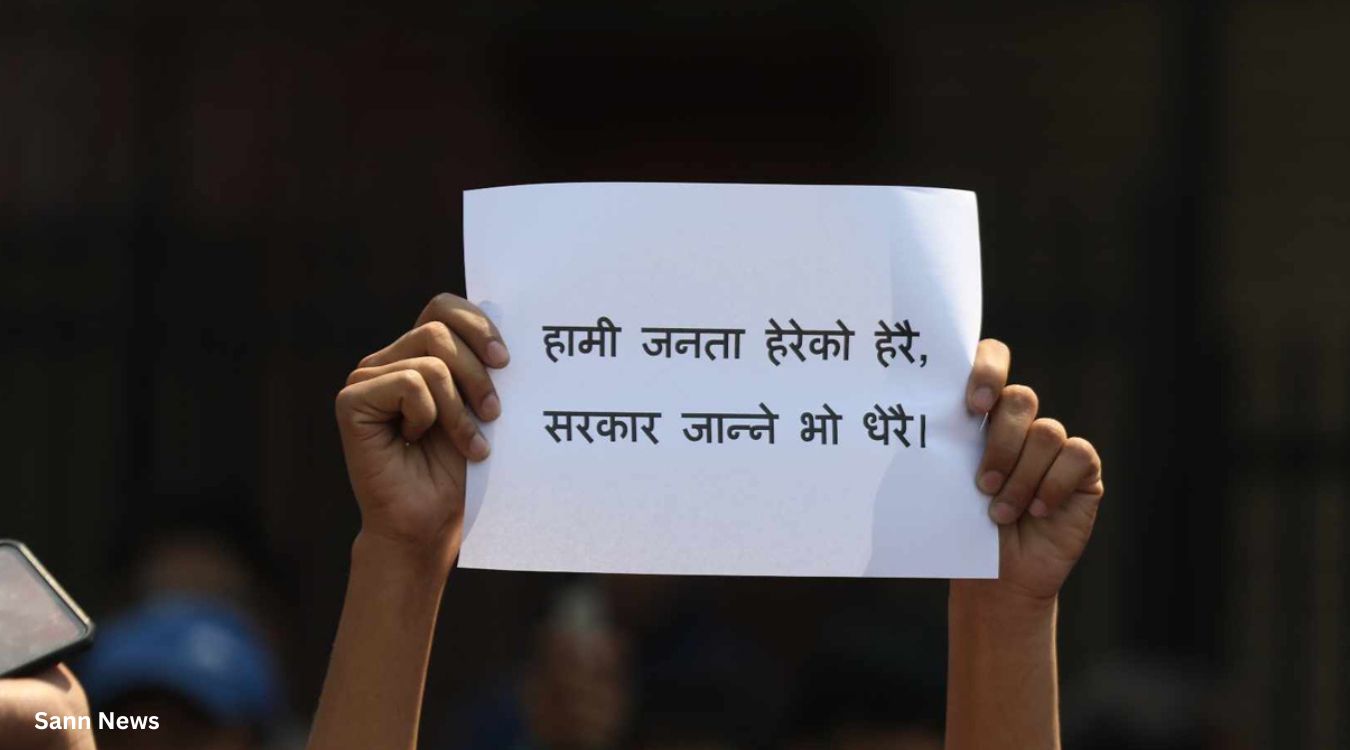 हामी जनता हेरेको हेरै,
सरकार जान्ने भो धेरै।
Sann News